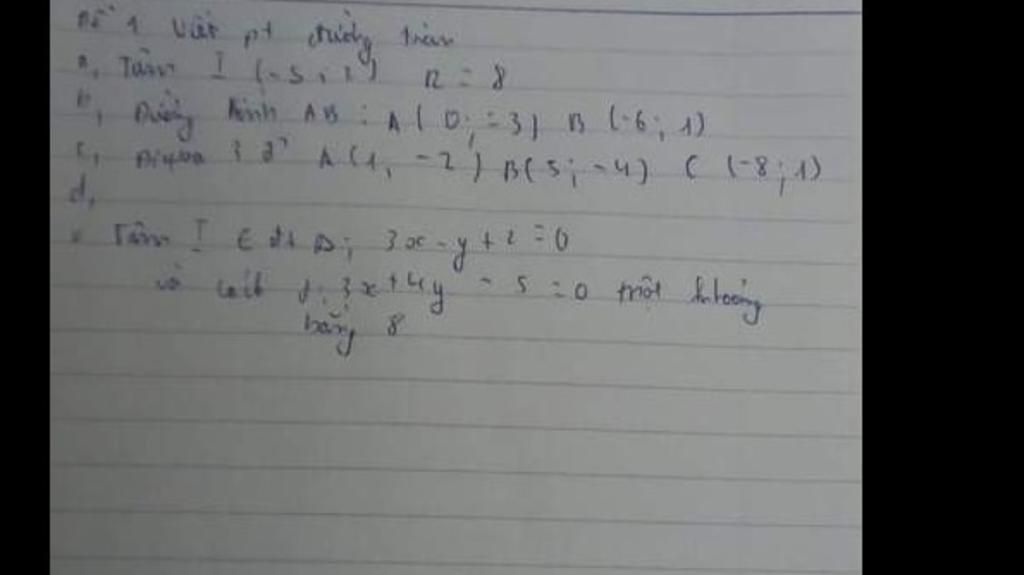 Đề 1 Viết pt đường tròn
a, Tâm I (-5; ) R = 8
b, Đường kính AB : A( 0; -3) B (-6; 1)
c, Đi qua 3 đ' A(1, -2) B(5; -4) C (-8; 1)
d,
Tâm I ∈ đt Δ; 3x - y + 2 = 0
và d: 3x + 4y - 5 = 0 một khoảng
bằng 8